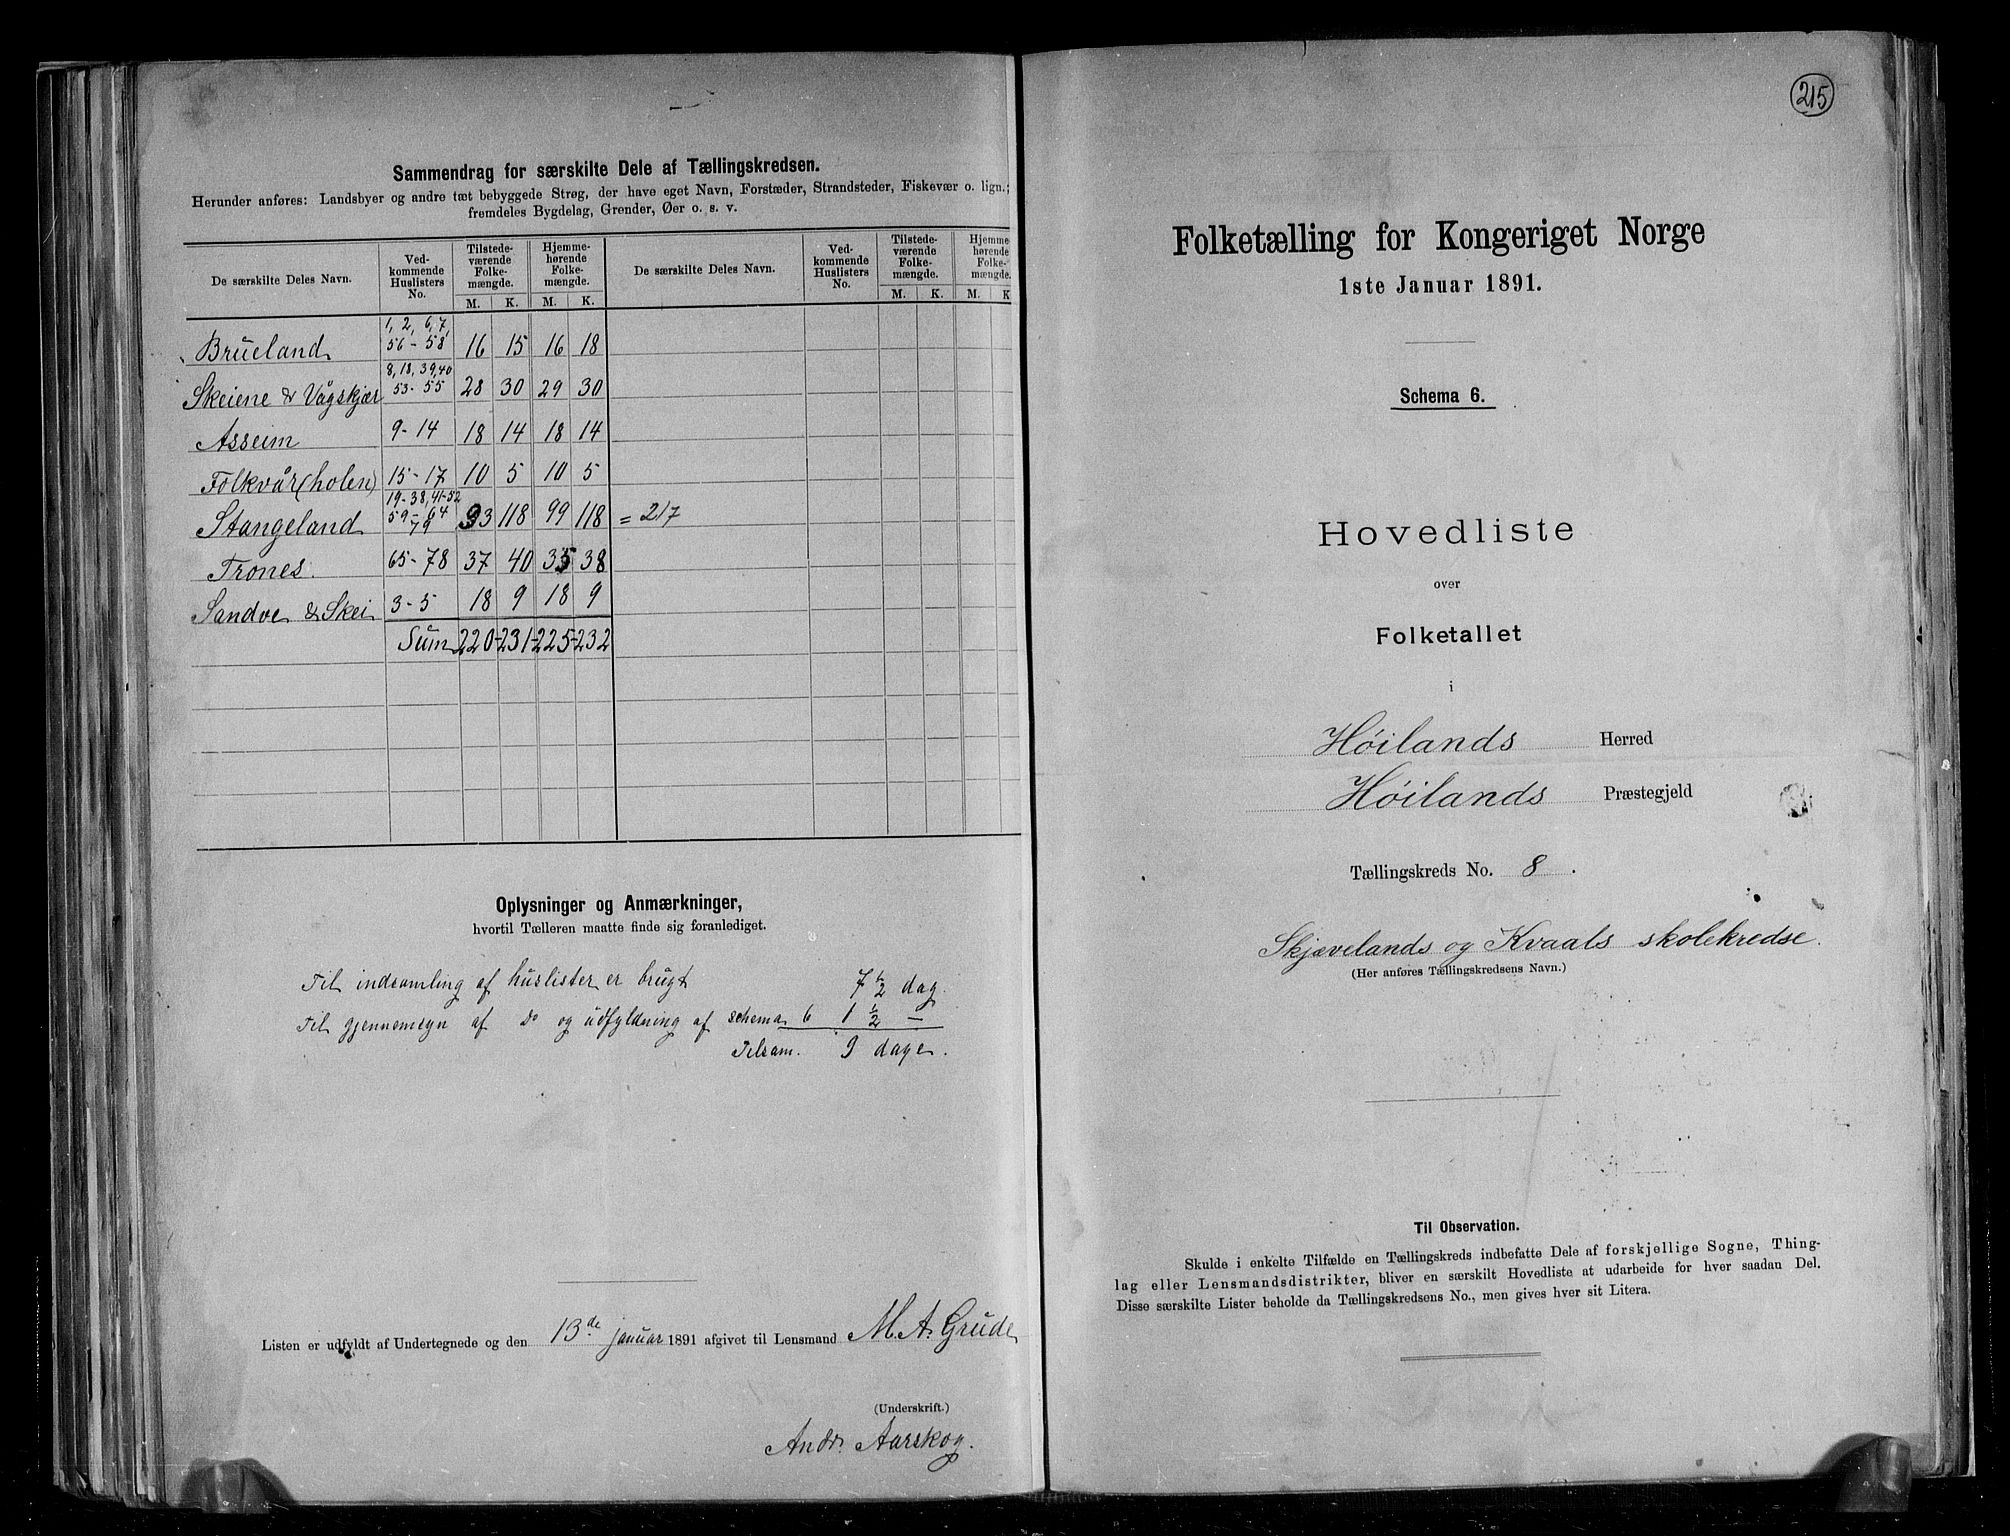 Sammendrag for særskilte Dele af Tællingskredsen.
Herunder anføres: Landsbyer og andre tæt bebyggede Strøg, der have eget Navn, Forstæder, Strandsteder, Fiskevær o. lign.;
fremdeles Bygdelag, Grender, Øer o. s. v.
De særskilte Deles Navn. Ved-kommende Huslisters No. Tilstede-værende Folke-mængde. Hjemme-hørende Folke-mængde. De særskilte Deles Navn. Ved-kommende Huslisters No. Tilstede-værende Folke-mængde. Hjemme-hørende Folke-mængde.
M. K. M. K. M. K. M. K
1, 2, 6, 7,
Brueland 56 - 58 16 15 16 18
8, 18, 39, 40
Skeiene & Vågskjær 53 - 55 28 30 29 30
Asseim 9 - 14 18 14 18 14
Folkvår (holen) 15 - 17 10 5 10 5
19 - 38, 41 - 52
Stangeland 59 - 64 93 118 99 118 = 217
79
Trones. 65 - 78 37 40 35 38
Sandve & Skei 3 - 5 18 9 18 9
Sum 220 - 231 - 225 - 232
Oplysninger og Anmærkninger,
hvortil Tælleren maatte finde sig foranlediget.
Til indsamling af huslister er brugt 7 1/2 dag.
Til gjennemsyn af Do og udfyldning af schema 6 1 1/2 —
Tilsam. 9 dage.
Listen er udfyldt af Undertegnede og den 13de januar 1891 afgivet til Lensmand M. A. Grude
(Underskrift.)
Andr. Aarskog.
215
Folketælling for Kongeriget Norge
1ste Januar 1891.
Schema 6.
Hovedliste
over
Folketallet
i
Høilands Herred
Høilands Præstegjeld
Tællingskreds No. 8.
Skjævelands og Kvaals skolekredse.
(Her anføres Tællingskredsens Navn.)
Til Observation.
Skulde i enkelte Tilfælde en Tællingskreds indbefatte Dele af forskjellige Sogne, Thing-
lag eller Lensmandsdistrikter, bliver en særskilt Hovedliste at udarbeide for hver saadan Del.
Disse særskilte Lister beholde da Tællingskredsens No., men gives hver sit Litera.